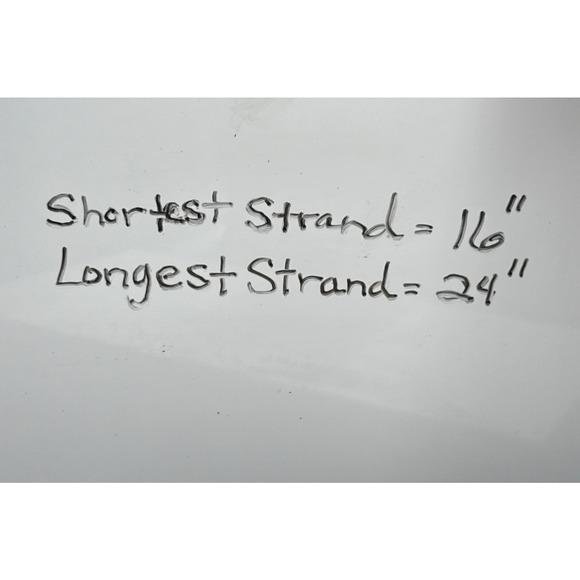 Shortest Strand = 16"
Longest Strand = 24"